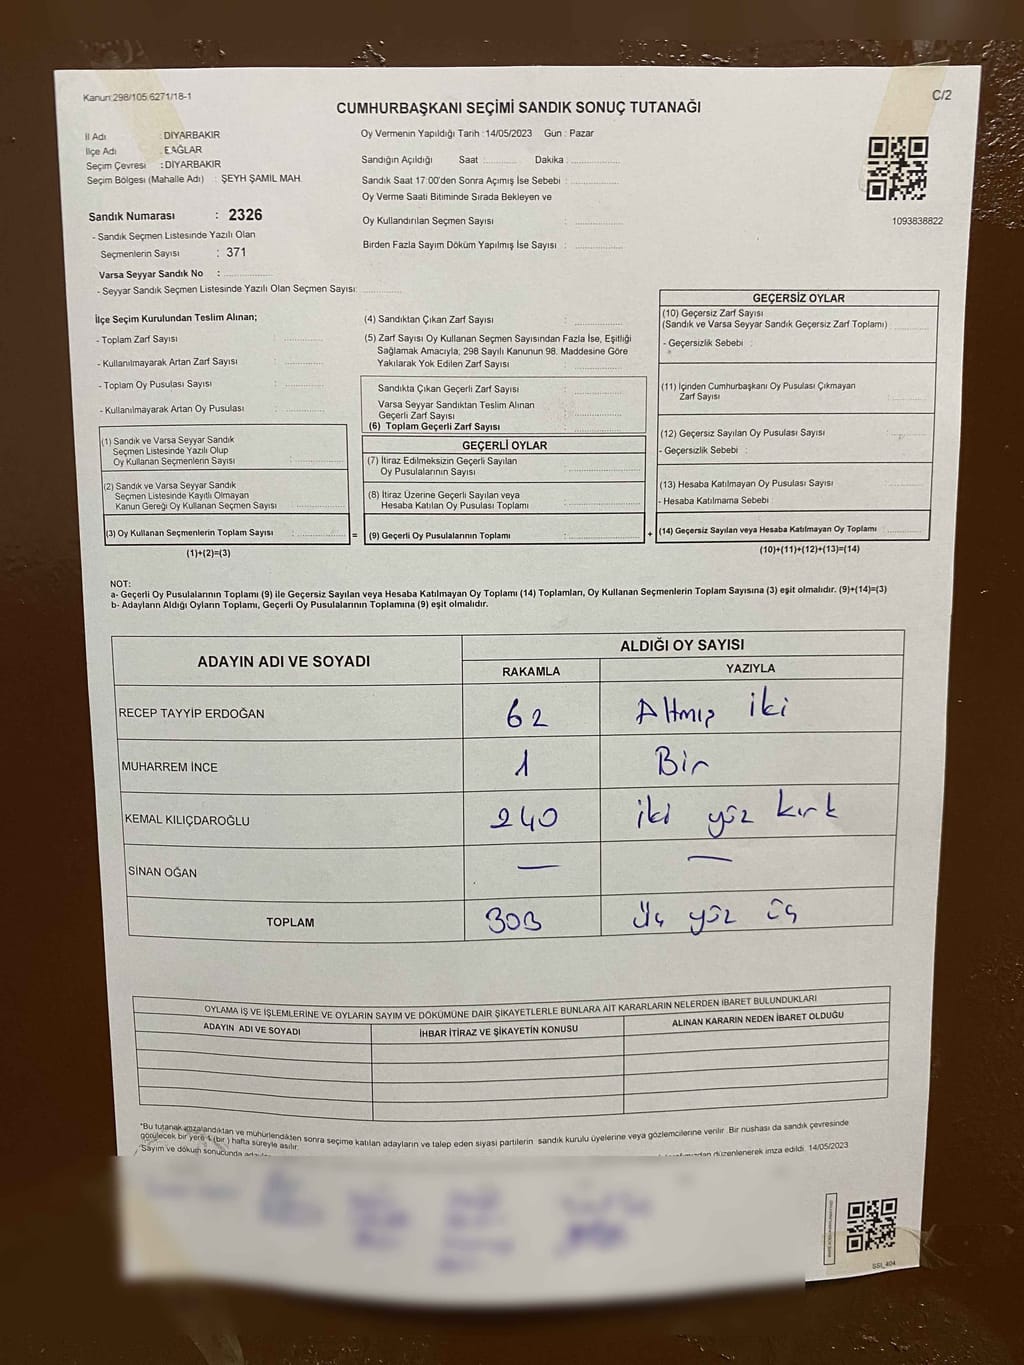 Kanun:298/105.6271/18-1
C/2
CUMHURBAŞKANI SEÇİMİ SANDIK SONUÇ TUTANAĞI
İl Adı : DİYARBAKIR
İlçe Adı : BAĞLAR
Seçim Çevresi : DİYARBAKIR
Seçim Bölgesi (Mahalle Adı) : ŞEYH ŞAMİL MAH.
Sandık Numarası : 2326
- Sandık Seçmen Listesinde Yazılı Olan
Seçmenlerin Sayısı : 371
Varsa Seyyar Sandık No :
- Seyyar Sandık Seçmen Listesinde Yazılı Olan Seçmen Sayısı:
Oy Vermenin Yapıldığı Tarih :14/05/2023 Gün : Pazar
Sandığın Açıldığı Saat : Dakika :
Sandık Saat 17:00'den Sonra Açımış İse Sebebi :
Oy Verme Saati Bitiminde Sırada Bekleyen ve
Oy Kullandırılan Seçmen Sayısı :
Birden Fazla Sayım Döküm Yapılmış İse Sayısı :
1093838822
İlçe Seçim Kurulundan Teslim Alınan;
- Toplam Zarf Sayısı :
- Kullanılmayarak Artan Zarf Sayısı :
- Toplam Oy Pusulası Sayısı :
- Kullanılmayarak Artan Oy Pusulası :
(1) Sandık ve Varsa Seyyar Sandık
Seçmen Listesinde Yazılı Olup
Oy Kullanan Seçmenlerin Sayısı :
(2) Sandık ve Varsa Seyyar Sandık
Seçmen Listesinde Kayıtlı Olmayan
Kanun Gereği Oy Kullanan Seçmen Sayısı :
(3) Oy Kullanan Seçmenlerin Toplam Sayısı :
(1)+(2)=(3)
(4) Sandıktan Çıkan Zarf Sayısı :
(5) Zarf Sayısı Oy Kullanan Seçmen Sayısından Fazla İse, Eşitliği
Sağlamak Amacıyla, 298 Sayılı Kanunun 98. Maddesine Göre
Yakılarak Yok Edilen Zarf Sayısı :
Sandıkta Çıkan Geçerli Zarf Sayısı :
Varsa Seyyar Sandıktan Teslim Alınan
Geçerli Zarf Sayısı :
(6) Toplam Geçerli Zarf Sayısı :
GEÇERLİ OYLAR
(7) İtiraz Edilmeksizin Geçerli Sayılan
Oy Pusulalarının Sayısı :
(8) İtiraz Üzerine Geçerli Sayılan veya
Hesaba Katılan Oy Pusulası Toplamı :
= (9) Geçerli Oy Pusulalarının Toplamı : +
GEÇERSİZ OYLAR
(10) Geçersiz Zarf Sayısı
(Sandık ve Varsa Seyyar Sandık Geçersiz Zarf Toplamı)
- Geçersizlik Sebebi :
(11) İçinden Cumhurbaşkanı Oy Pusulası Çıkmayan
Zarf Sayısı :
(12) Geçersiz Sayılan Oy Pusulası Sayısı :
- Geçersizlik Sebebi :
(13) Hesaba Katılmayan Oy Pusulası Sayısı :
- Hesaba Katılmama Sebebi :
(14) Geçersiz Sayılan veya Hesaba Katılmayan Oy Toplamı :
(10)+(11)+(12)+(13)=(14)
NOT:
a- Geçerli Oy Pusulalarının Toplamı (9) ile Geçersiz Sayılan veya Hesaba Katılmayan Oy Toplamı (14) Toplamları, Oy Kullanan Seçmenlerin Toplam Sayısına (3) eşit olmalıdır. (9)+(14)=(3)
b- Adayların Aldığı Oyların Toplamı, Geçerli Oy Pusulalarının Toplamına (9) eşit olmalıdır.
ADAYIN ADI VE SOYADI
ALDIĞI OY SAYISI
RAKAMLA YAZIYLA
RECEP TAYYİP ERDOĞAN 62 Altmış iki
MUHARREM İNCE 1 Bir
KEMAL KILIÇDAROĞLU 240 iki yüz kırk
SİNAN OĞAN — —
TOPLAM 303 Üç yüz üç
OYLAMA İŞ VE İŞLEMLERİNE VE OYLARIN SAYIM VE DÖKÜMÜNE DAİR ŞİKAYETLERLE BUNLARA AİT KARARLARIN NELERDEN İBARET BULUNDUKLARI
ADAYIN ADI VE SOYADI İHBAR İTİRAZ VE ŞİKAYETİN KONUSU ALINAN KARARIN NEDEN İBARET OLDUĞU
*Bu tutanak imzalandıktan ve mühürlendikten sonra seçime katılan adayların ve talep eden siyasi partilerin sandık kurulu üyelerine veya gözlemcilerine verilir. Bir nüshası da sandık çevresinde
görülecek bir yere 1 (bir) hafta süreyle asılır.
*Sayım ve döküm sonucunda düzenlenerek imza edildi. 14/05/2023
SSI_404